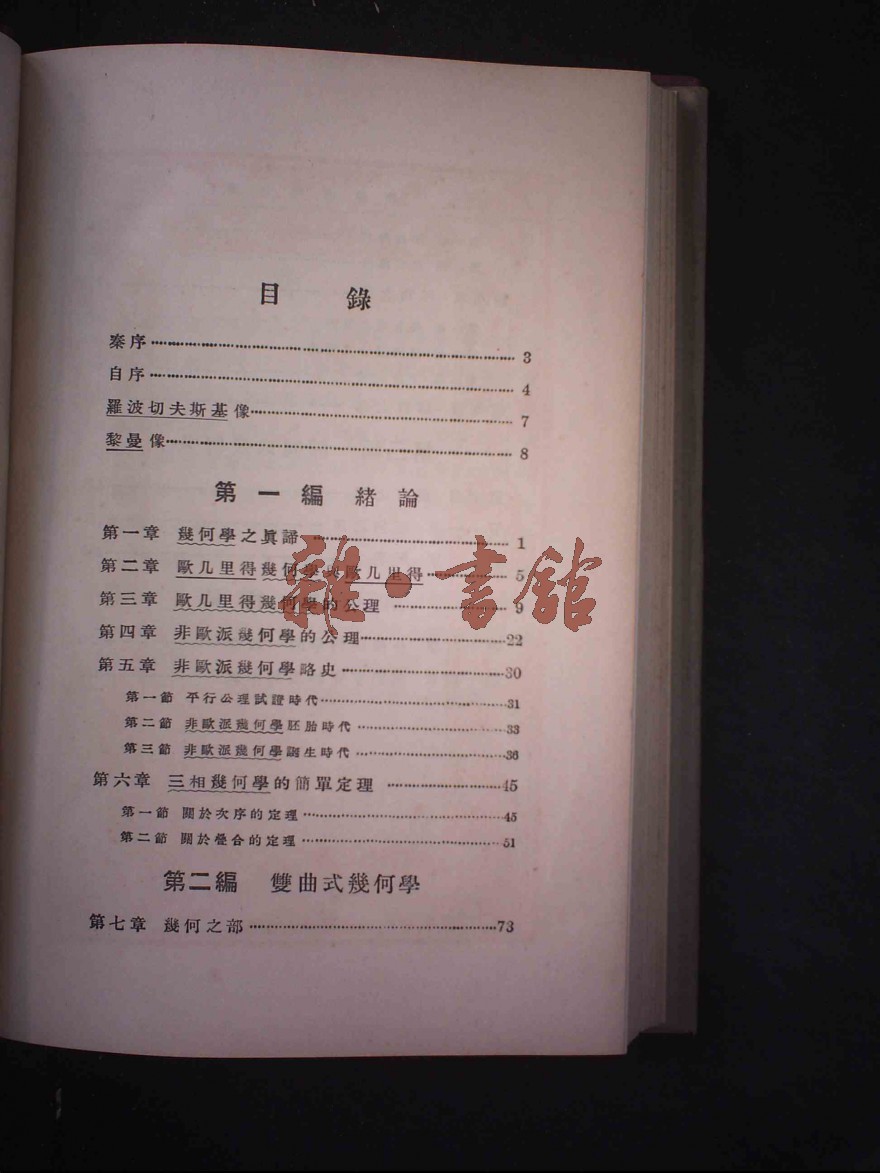 目錄
秦序 3
自序 4
羅波切夫斯基像 7
黎曼像 8
第一編 緒論
第一章 幾何學之眞諦 1
第二章 歐几里得幾何學與歐几里得 5
第三章 歐几里得幾何學的公理 9
第四章 非歐派幾何學的公理 22
第五章 非歐派幾何學略史 30
第一節 平行公理試證時代 31
第二節 非歐派幾何學胚胎時代 33
第三節 非歐派幾何學誕生時代 36
第六章 三相幾何學的簡單定理 45
第一節 關於次序的定理 45
第二節 關於疊合的定理 51
第二編 雙曲式幾何學
第七章 幾何之部 73
雜·書館